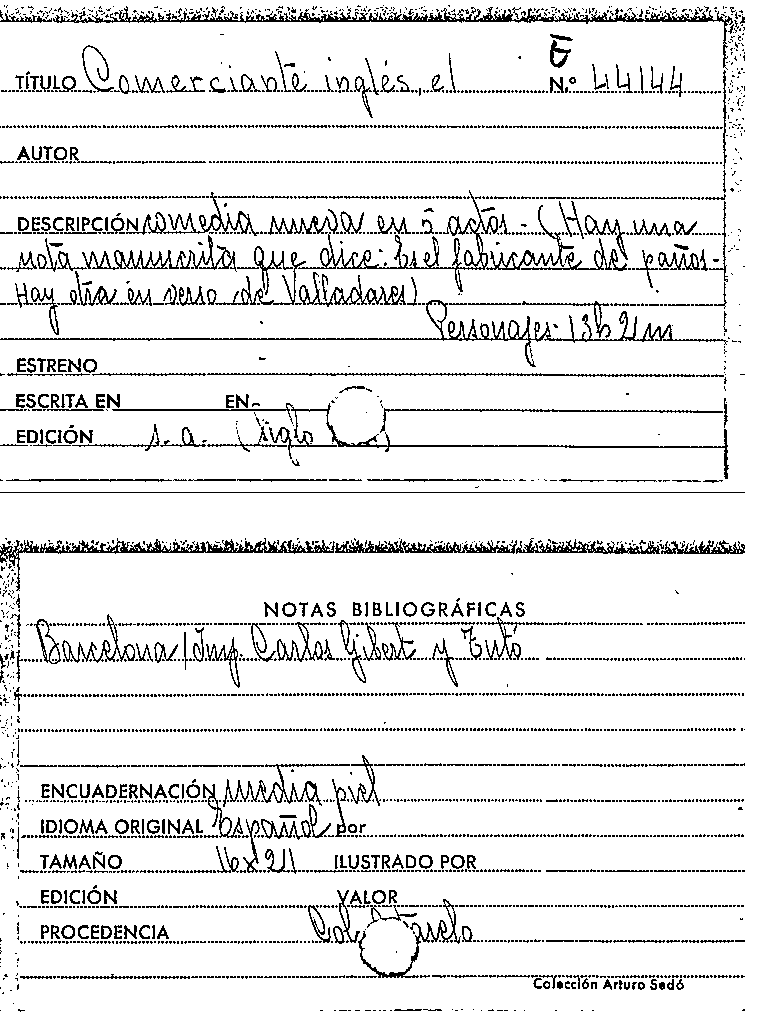 E
TÍTULO Comerciante inglés, el N.º 44144
AUTOR
DESCRIPCIÓN comedia nueva en 5 actos - (Hay una
nota manuscrita que dice: Es el fabricante de paños -
Hay otra en verso de Valladares)
Personajes - 13h 2m
ESTRENO -
ESCRITA EN EN -
EDICIÓN s. a. (Siglo )
NOTAS BIBLIOGRÁFICAS
Barcelona / Imp. Carlos Gibert y Tutó
ENCUADERNACIÓN media piel
IDIOMA ORIGINAL Español por
TAMAÑO 16x21 ILUSTRADO POR
EDICIÓN VALOR
PROCEDENCIA
Colección Arturo Sedó